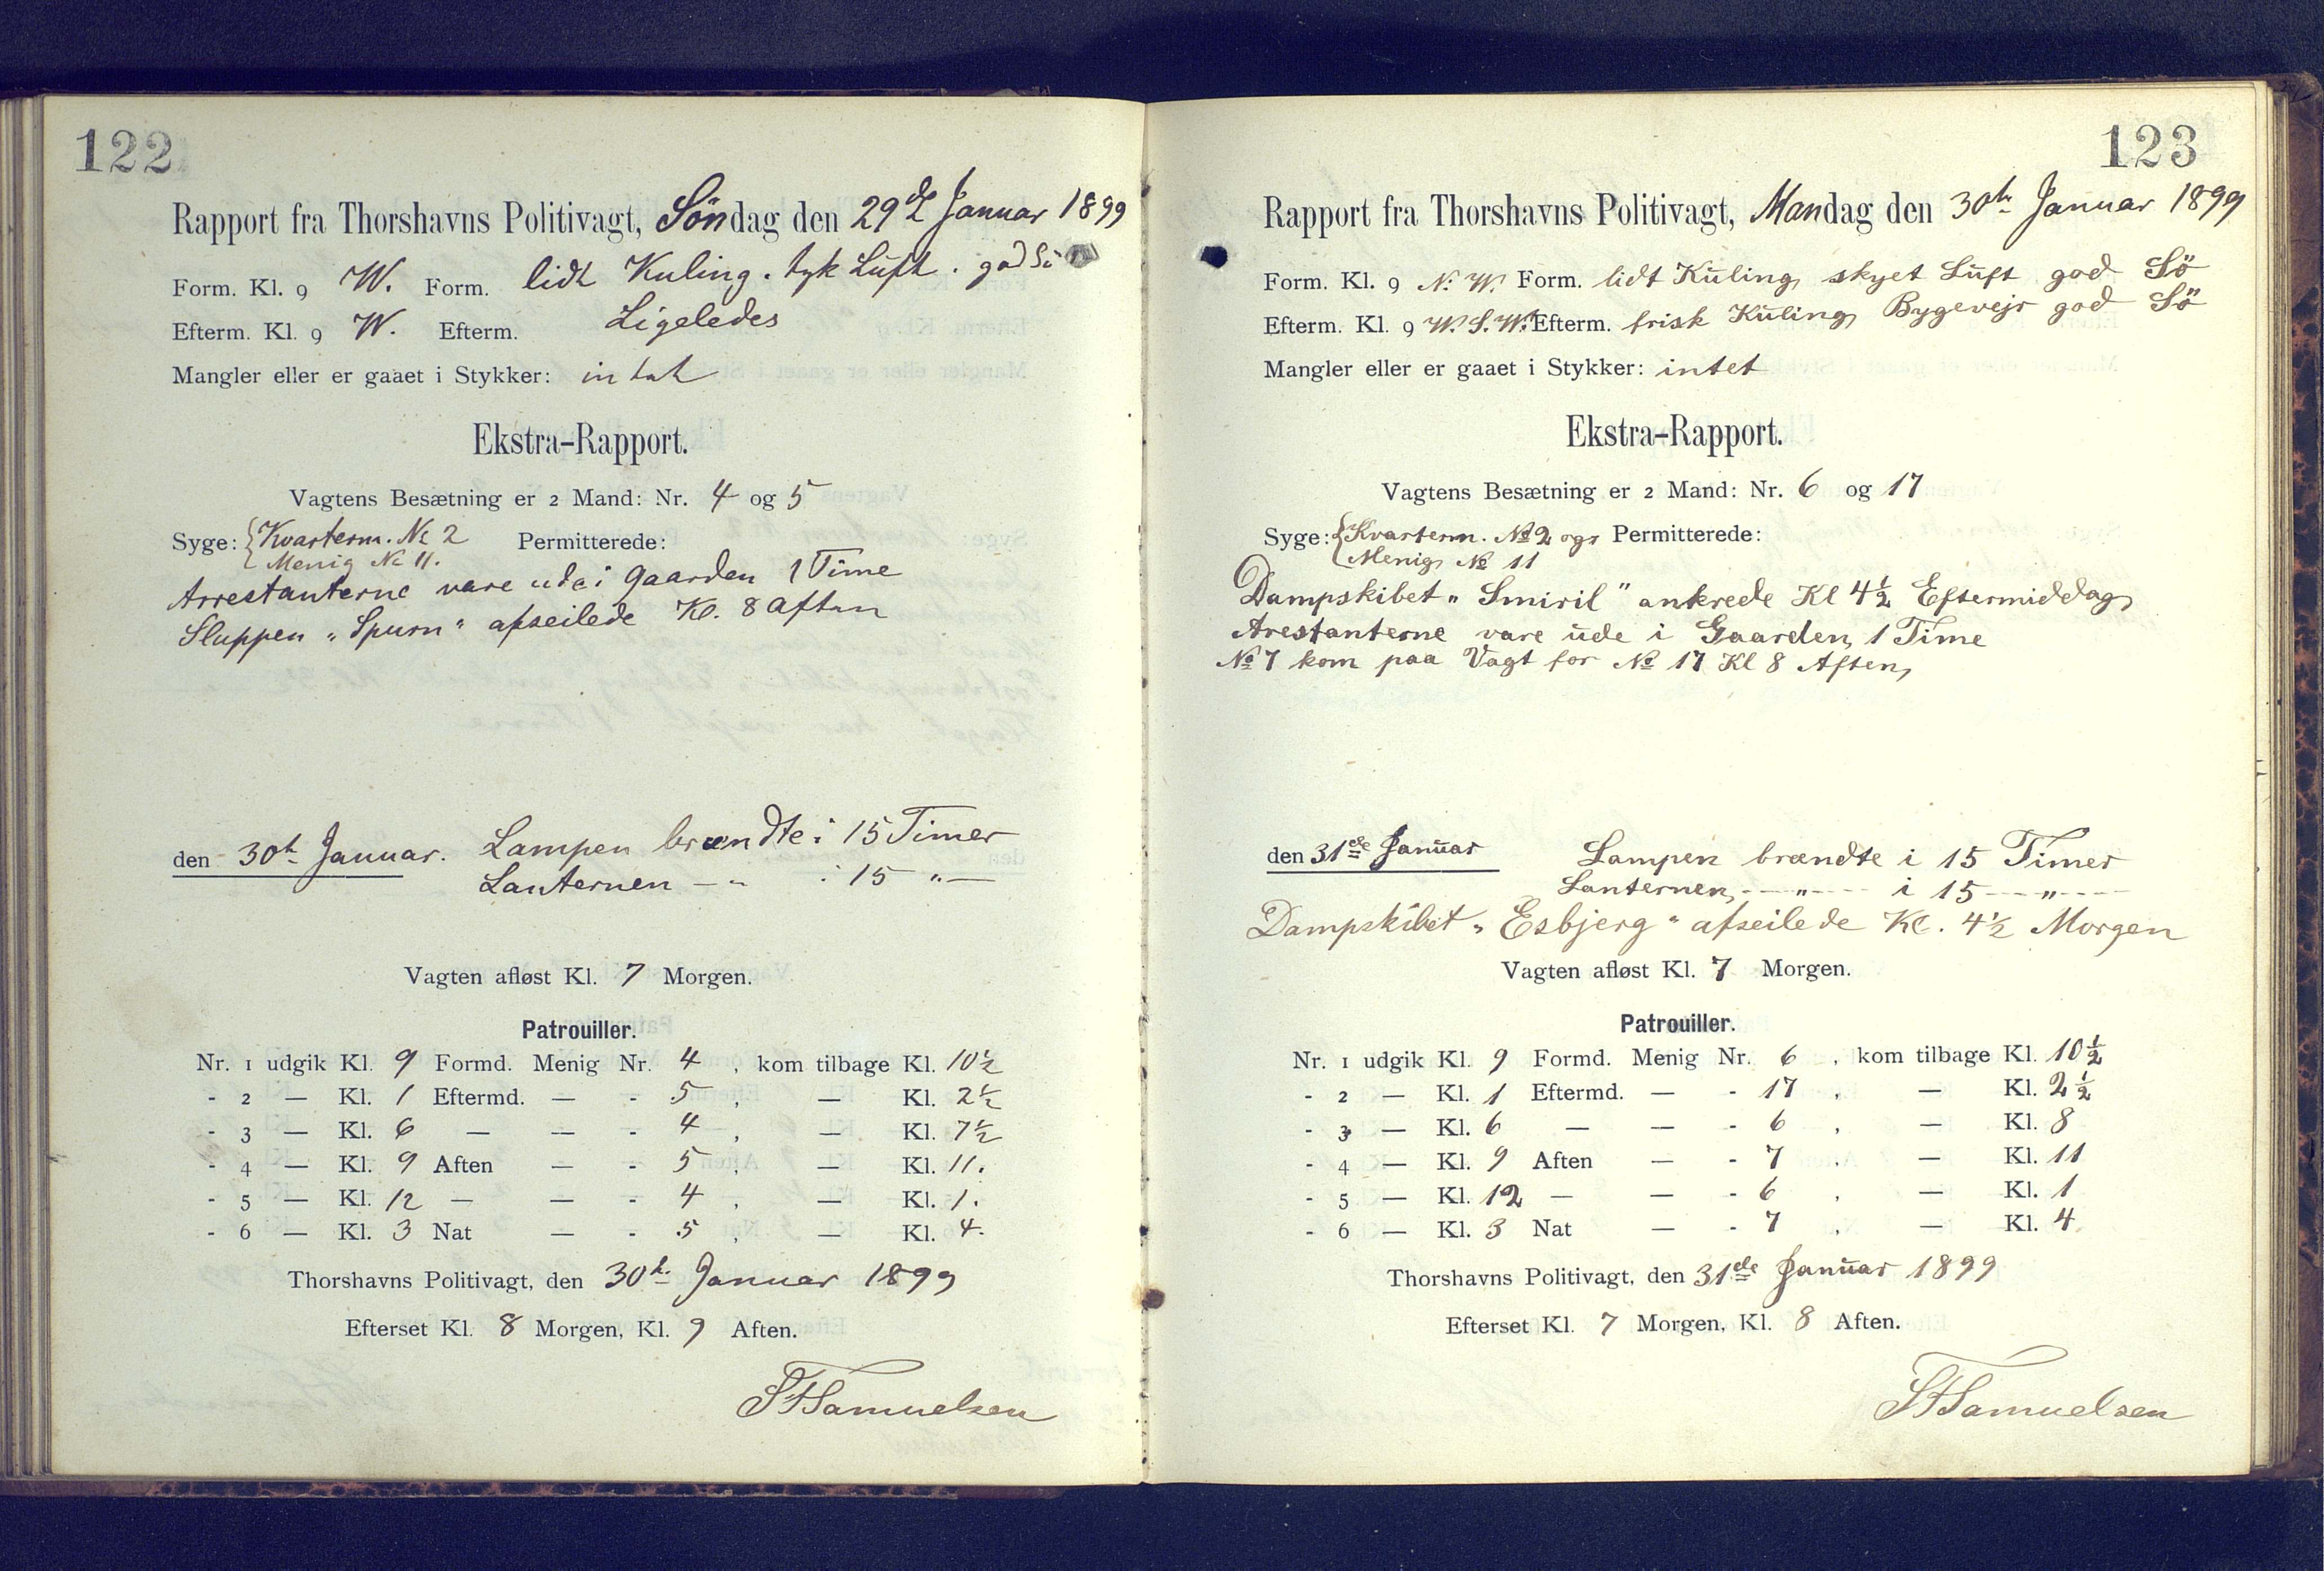 122
Rapport fra Thorshavns Politivagt, Söndag den 29de Januar 1899
Form. Kl. 9 W. Form. lidt Kuling. tyk Luft. god Sö
Efterm. Kl. 9 W. Efterm. Ligeledes
Mangler eller er gaaet i Stykker: intet
Ekstra-Rapport.
Vagtens Besætning er 2 Mand: Nr. 4 og 5
Syge: { Kvarterm. No 2 Permitterede:
Menig No 11.
Arrestanterne vare ude i Gaarden 1 Time
Sluppen „Spurn“ afseilede Kl. 8 Aften
den 30te Januar. Lampen brændte i 15 Timer
Lanternen — „ i 15 „ —
Vagten afløst Kl. 7 Morgen.
Patrouiller.
Nr. 1 udgik Kl. 9 Formd. Menig Nr. 4, kom tilbage Kl. 10½
- 2 — Kl. 1 Eftermd. — - 5, — Kl. 2½
- 3 — Kl. 6 — — - 4, — Kl. 7½
- 4 — Kl. 9 Aften — - 5, — Kl. 11.
- 5 — Kl. 12 — — - 4, — Kl. 1.
- 6 — Kl. 3 Nat — - 5, — Kl. 4.
Thorshavns Politivagt, den 30te Januar 1899
Efterset Kl. 8 Morgen, Kl. 9 Aften.
Samuelsen
123
Rapport fra Thorshavns Politivagt, Mandag den 30te Januar 1899
Form. Kl. 9 N. W. Form. lidt Kuling, skyet Luft god Sö
Efterm. Kl. 9 W. S. W. Efterm. frisk Kuling, Bygevejr god Sö
Mangler eller er gaaet i Stykker: intet
Ekstra-Rapport.
Vagtens Besætning er 2 Mand: Nr. 6 og 17
Syge: { Kvarterm. No 2 og Permitterede:
Menig No 11
Dampskibet „Smiril“ ankrede Kl 4½ Eftermiddag
Arestanterne vare ude i Gaarden, 1 Time
No 7 kom paa Vagt for No 17 Kl 8 Aften,
den 31de Januar Lampen brændte i 15 Timer
Lanternen, - — „ — i 15 — „ —
Dampskibet „Esbjerg“ afseilede Kl. 4½ Morgen
Vagten afløst Kl. 7 Morgen.
Patrouiller.
Nr. 1 udgik Kl. 9 Formd. Menig Nr. 6, kom tilbage Kl. 10½
- 2 — Kl. 1 Eftermd. — - 17, — Kl. 2½
- 3 — Kl. 6 — — - 6, — Kl. 8
- 4 — Kl. 9 Aften — - 7, — Kl. 11
- 5 — Kl. 12 — — - 6, — Kl. 1
- 6 — Kl. 3 Nat — - 7, — Kl. 4.
Thorshavns Politivagt, den 31de Januar 1899
Efterset Kl. 7 Morgen, Kl. 8 Aften.
Samuelsen